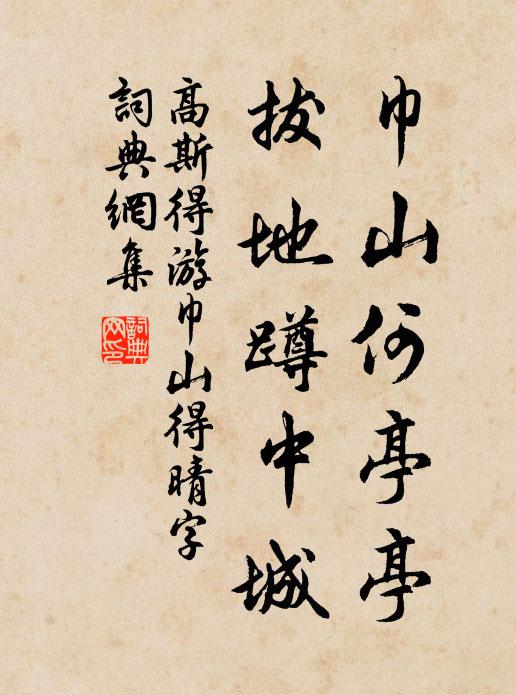 巾山何亭亭
拔地蹲中城
高斯得游巾山得晴字
詞典網集
詞典網印